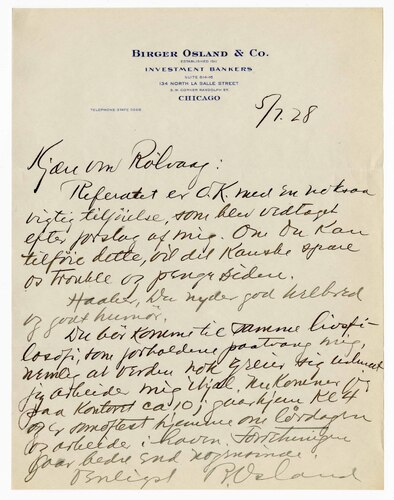 BIRGER OSLAND & CO.
ESTABLISHED 1911
INVESTMENT BANKERS
SUITE 814-16
134 NORTH LA SALLE STREET
S.W. CORNER RANDOLPH ST.
CHICAGO
TELEPHONE: STATE
5/7.28
Kjære ven Rølvaag:
Referatet er O.K. med en nokså
vigtig tilföielse, som blev vedtaget
efter forslag af mig. Om du kan
tilföre dette, vil det kanske spare
os trouble og penge siden.
Haaber, Du nyder god helbred
og godt humør.
Du bör komme til samme livsfi-
losofi, som forholdene paatvang mig,
nemlig at verden nok greier sig
jeg arbeider mig ihjel. Nu kommer jeg
paa kontoret ca 10; gaar hjem Kl 4
og er som oftest hjemme om lördagen
og arbeider i haven. Forretningen
gaar bedre end nogensinde.
Venligst B. Osland